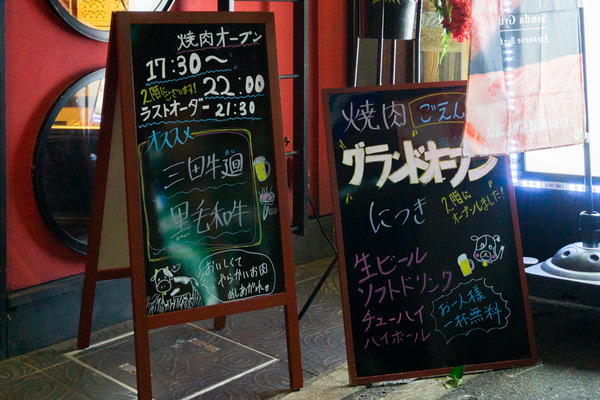 焼肉オープン
17:30〜
2階にございます!
22:00
ラストオーダー 21:30
オススメ
三田牛廻
黒毛和牛
おいしくて
やらかいお肉
めしあがれ
焼肉 ごえん
グランドオープン
につき
2階に
オープンしました!
生ビール
ソフトドリンク
チューハイ
ハイボール
お一人様
一杯無料
Sanda Gyu
Japanese Beef